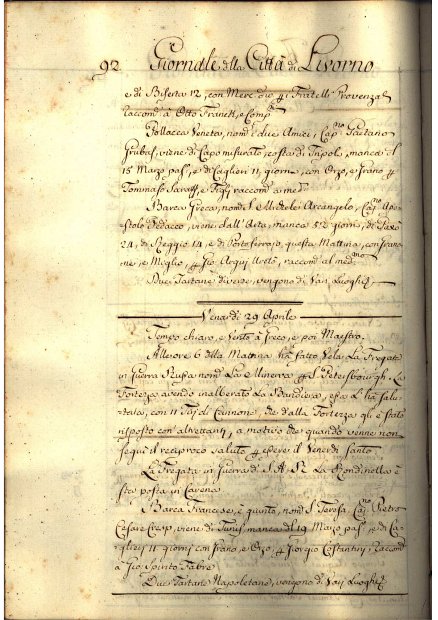 92 Giornale della Città di Livorno
e di Biserta 12, con Merc. div. p. Fratelli Provenzal
Raccomd. à Otto Franck, e Compi.
Pollacca Veneta, nomta. i due Amici, Capno. Gaetano
Grubas, viene di Capo misurato, costa di Tripoli, manca il
15 Marzo pass., e di Caglieri 11, giorni, con Orzo, e Grano p.
Tommaso e Figlj raccomd. a med.
Barca Greca, nomta. S. Michele Arcangelo, Capno. Apo=
stolo viene dall'Arta, manca 52 giorni, di
24, di Reggio 14, e di Portoferrajo, questa Mattina, con
ne, e Miglio, p. raccomd. al medmo.
Due Tartane diverse, vengono di Varj Luoghi
Venerdì 29 Aprile
Tempo chiaro, e Vento à Greco, e poi Maestro.
All'ore 6 della Mattina hà fatto Vela La Fregata
in Guerra Russa nomta. La Minerva p. S. Petersbourgh. La
Fortezza avendo inalberato La Bandiera, essa L'hà salu=
tata, con 11 Tiri di Cannone, che dalla Fortezza gli è stato
risposto con' alvettanti, a motivo che quando venne non
seguì il reciproco saluto p. essere il Venerdì Santo.
La Fregata in Guerra di S. A. R. La Rondinella è
sta posta in Carena
Barca Francese, e quinto, nomta. S. Teresa, Capno. Pietro
Cesare Cresp, viene di Tunis, manca il 19 Marzo pass., e di Ca=
glieri 11 giorni con Grano, e Orzo, p. Giorgio Costantini, Raccomd.
à Gio. Spirito Fabre
Due Tartane Napoletane, vengono di Varj Luoghi